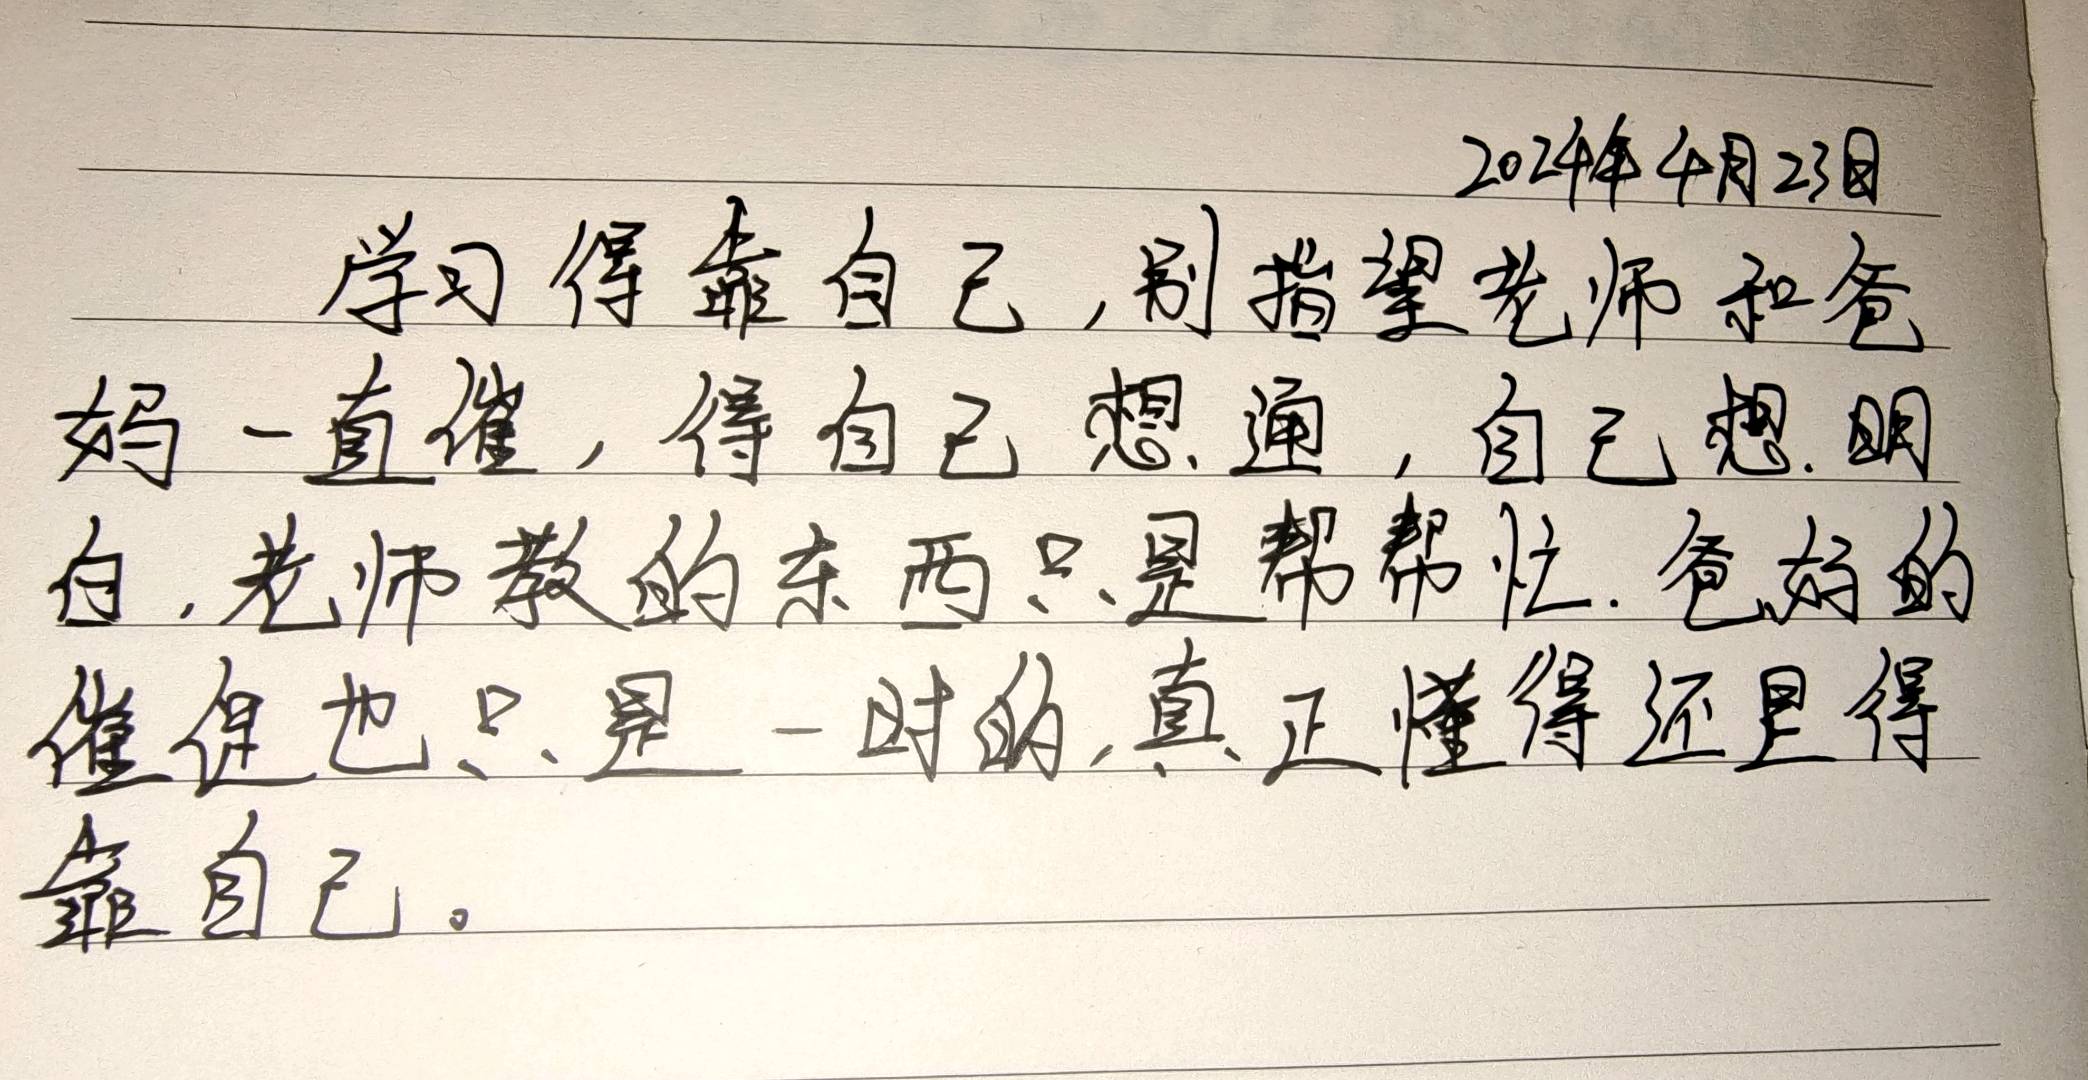 2024年4月23日
学习得靠自己，别指望老师和爸
妈一直催，得自己想通，自己想明
白，老师教的东西只是帮帮忙．爸妈的
催促也只是一时的，真正懂得还是得
靠自己。